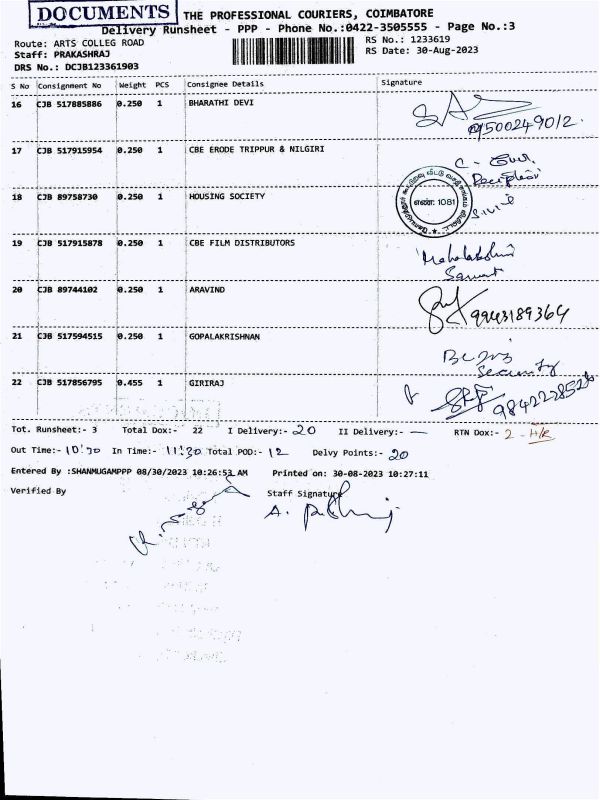 DOCUMENTS THE PROFESSIONAL COURIERS, COIMBATORE
Delivery Runsheet - PPP - Phone No.:0422-3505555 - Page No.:3
Route: ARTS COLLEG ROAD RS No.: 1233619
Staff: PRAKASHRAJ RS Date: 30-Aug-2023
DRS No.: DCJB123361903
S No Consignment No Weight PCS Consignee Details Signature
16 CJB 517885886 0.250 1 BHARATHI DEVI
9500249012.
17 CJB 517915954 0.250 1 CBE ERODE TRIPPUR & NILGIRI
18 CJB 89758730 0.250 1 HOUSING SOCIETY
எண்: 1081
19 CJB 517915878 0.250 1 CBE FILM DISTRIBUTORS
20 CJB 89744102 0.250 1 ARAVIND
9943189364
21 CJB 517594515 0.250 1 GOPALAKRISHNAN
Security
22 CJB 517856795 0.455 1 GIRIRAJ
Tot. Runsheet:- 3 Total Dox:- 22 I Delivery:- 20 II Delivery:- — RTN Dox:- 2 - H/R
Out Time:- 10:30 In Time:- 11:30 Total POD:- 12 Delvy Points:- 20
Entered By :SHANMUGAMPPP 08/30/2023 10:26:53 AM Printed on: 30-08-2023 10:27:11
Verified By Staff Signature